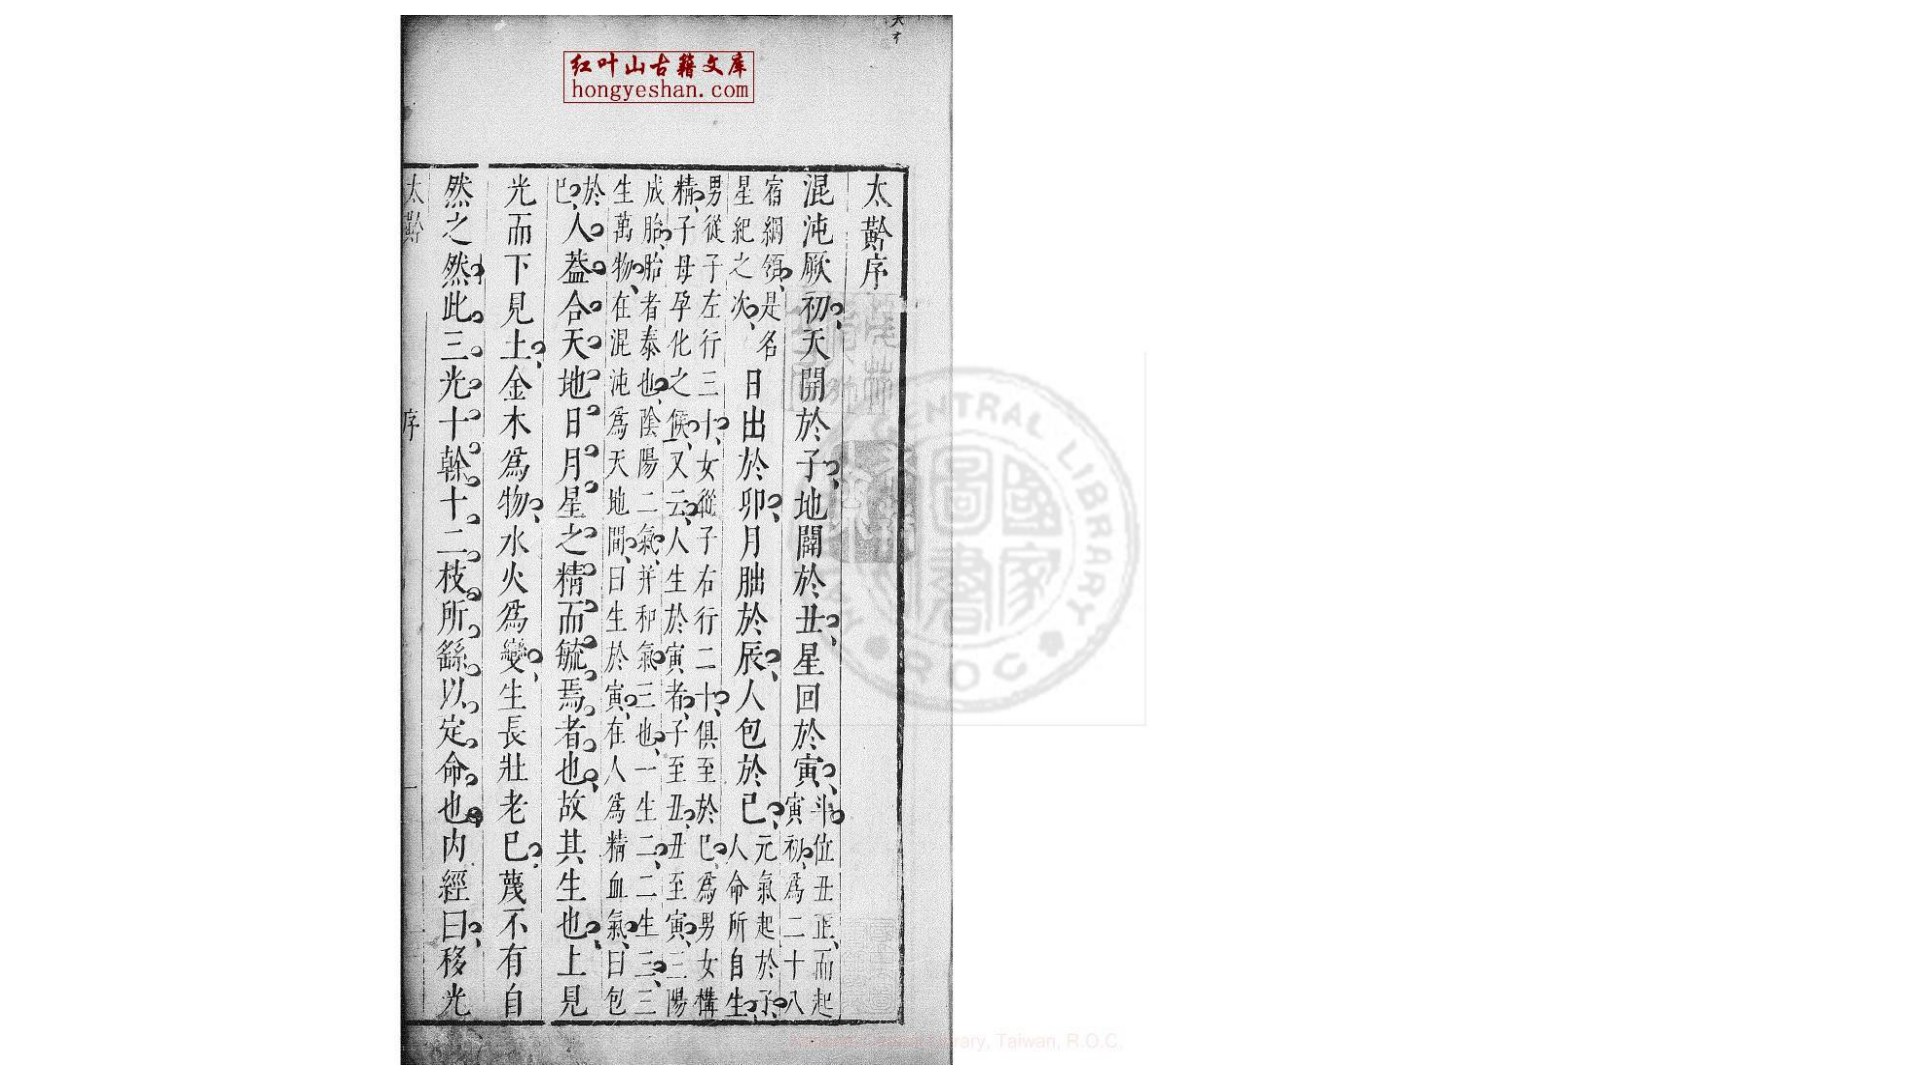 红叶山古籍文库
hongyeshan.com
太黅序
混沌厥初天開於子地闢於丑星回於寅斗位丑正而起寅初爲二十八
宿綱領是名星紀之次日出於卯月朏於辰人包於巳元氣起於子人命所自生
男從子左行三十女從子右行二十俱至於巳爲男女構
精子母孕化之候又云人生於寅者子至丑丑至寅三陽
成胎胎者泰也陰陽二氣并和氣三也一生二二生三三
生萬物在混沌爲天地間曰生於寅在人爲精血氣曰包
於巳人葢合天地日月星之精而毓焉者也故其生也上見
光而下見土金木爲物水火爲變生長壯老巳蔑不有自
然之然此三光十榦十二枝所繇以定命也內經曰移光
太黅 序 一
CENTRAL LIBRARY
R O C
國家圖書
Library, Taiwan, R.O.C.